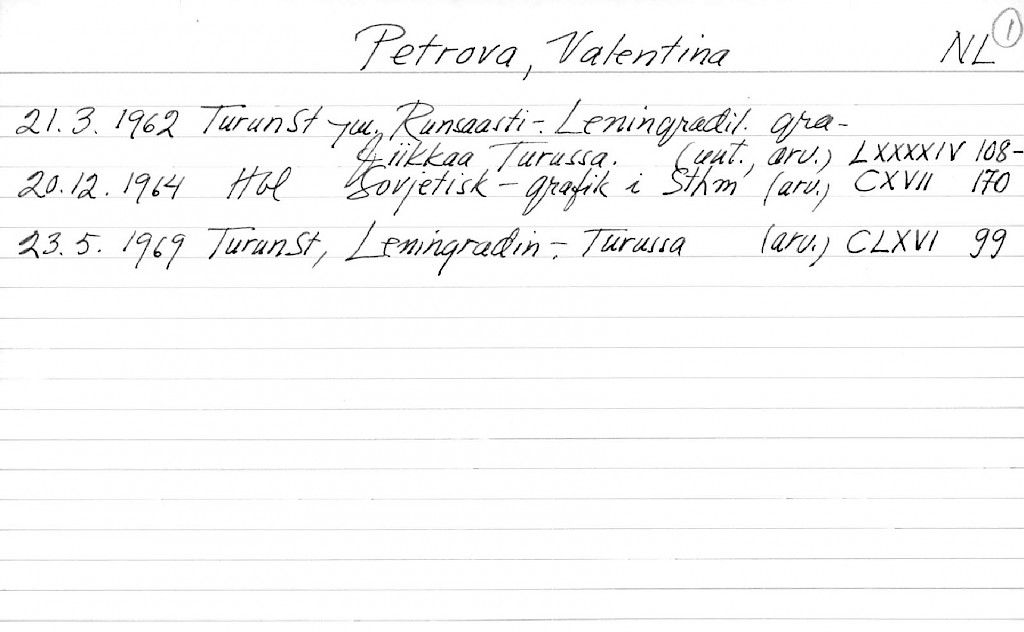 Petrova, Valentina NL 1
21.3.1962 TurunSt ym. Runsaasti - Leningradil. gra-
fiikkaa Turussa. (uut., arv.) LXXXXIV 108-
20.12.1964 Hbl Sovjetisk - grafik i Sthm (arv.) CXVII 170
23.5.1969 TurunSt, Leningradin - Turussa (arv.) CLXVI 99